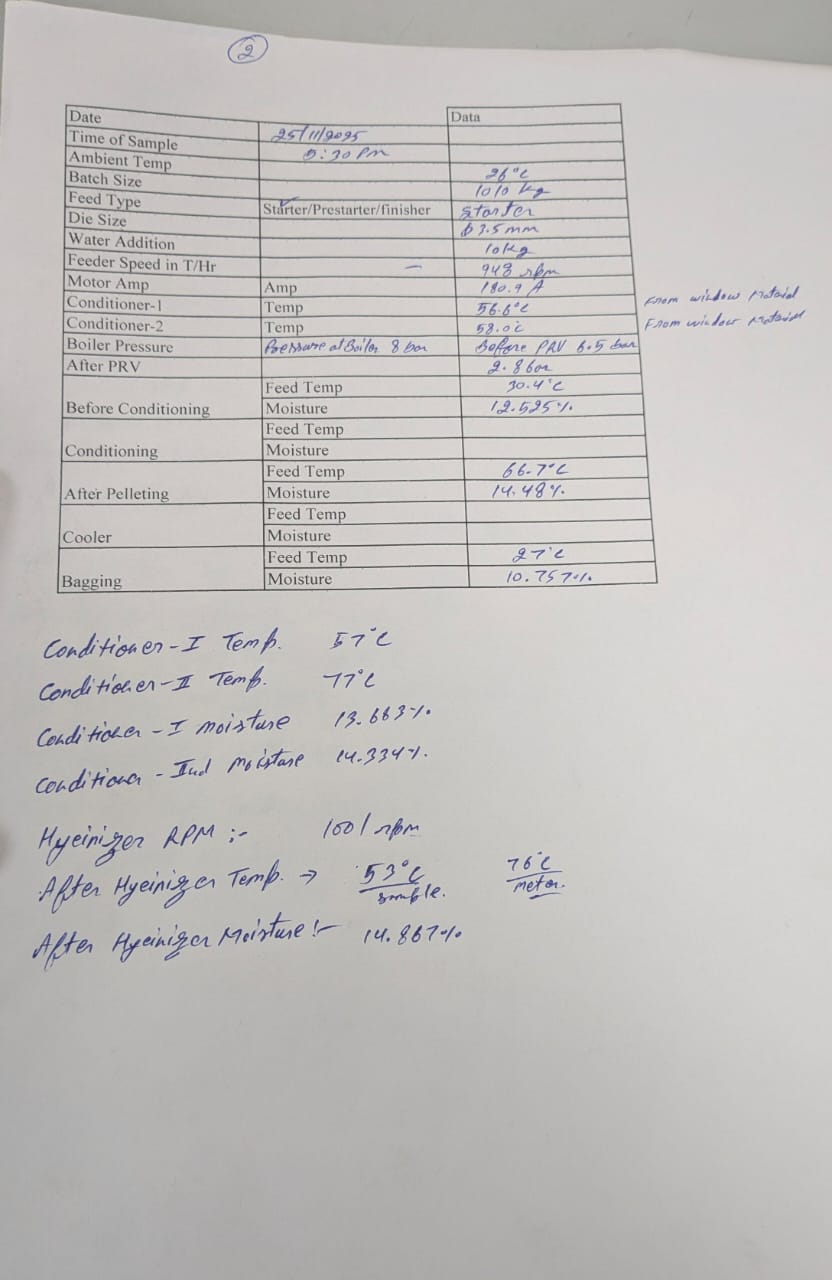 2
Date Data
Time of Sample 25/11/2025
Ambient Temp 5:30 Pm
Batch Size 26°C
Feed Type Starter/Prestarter/finisher 1010 kg
Die Size Starter
Water Addition ϕ 3.5 mm
Feeder Speed in T/Hr — 10kg
Motor Amp Amp 948 rpm
180.9 A
Conditioner-1 Temp 56.6°C From window Material
Conditioner-2 Temp 58.0°C From window Material
Boiler Pressure Pressure at Boiler 8 bar Before PRV 6.5 bar
After PRV 2.8 bar
Before Conditioning Feed Temp 30.4°C
Moisture 12.525%
Conditioning Feed Temp
Moisture
After Pelleting Feed Temp 66.7°C
Moisture 14.48%
Cooler Feed Temp
Moisture
Bagging Feed Temp 27°C
Moisture 10.757%
Conditioner-I Temp. 57°C
Conditioner-II Temp. 77°C
Conditioner-I moisture 13.663%
Conditioner-IInd Moisture 14.334%.
Hyeinizer RPM :- 1001 rpm
After Hyeinizer Temp. → 53°C sample. 76°C meter.
After Hyeinizer Moisture :- 14.867%